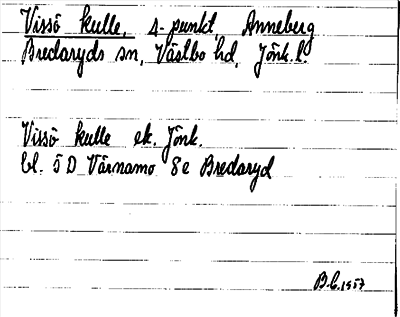 Vissö kulle, s-punkt, Anneberg
Bredaryds sn, Västbo hd, Jönk.l.
Vissö kulle ek. Jönk.
bl. 5 D Värnamo 8e Bredaryd
1957